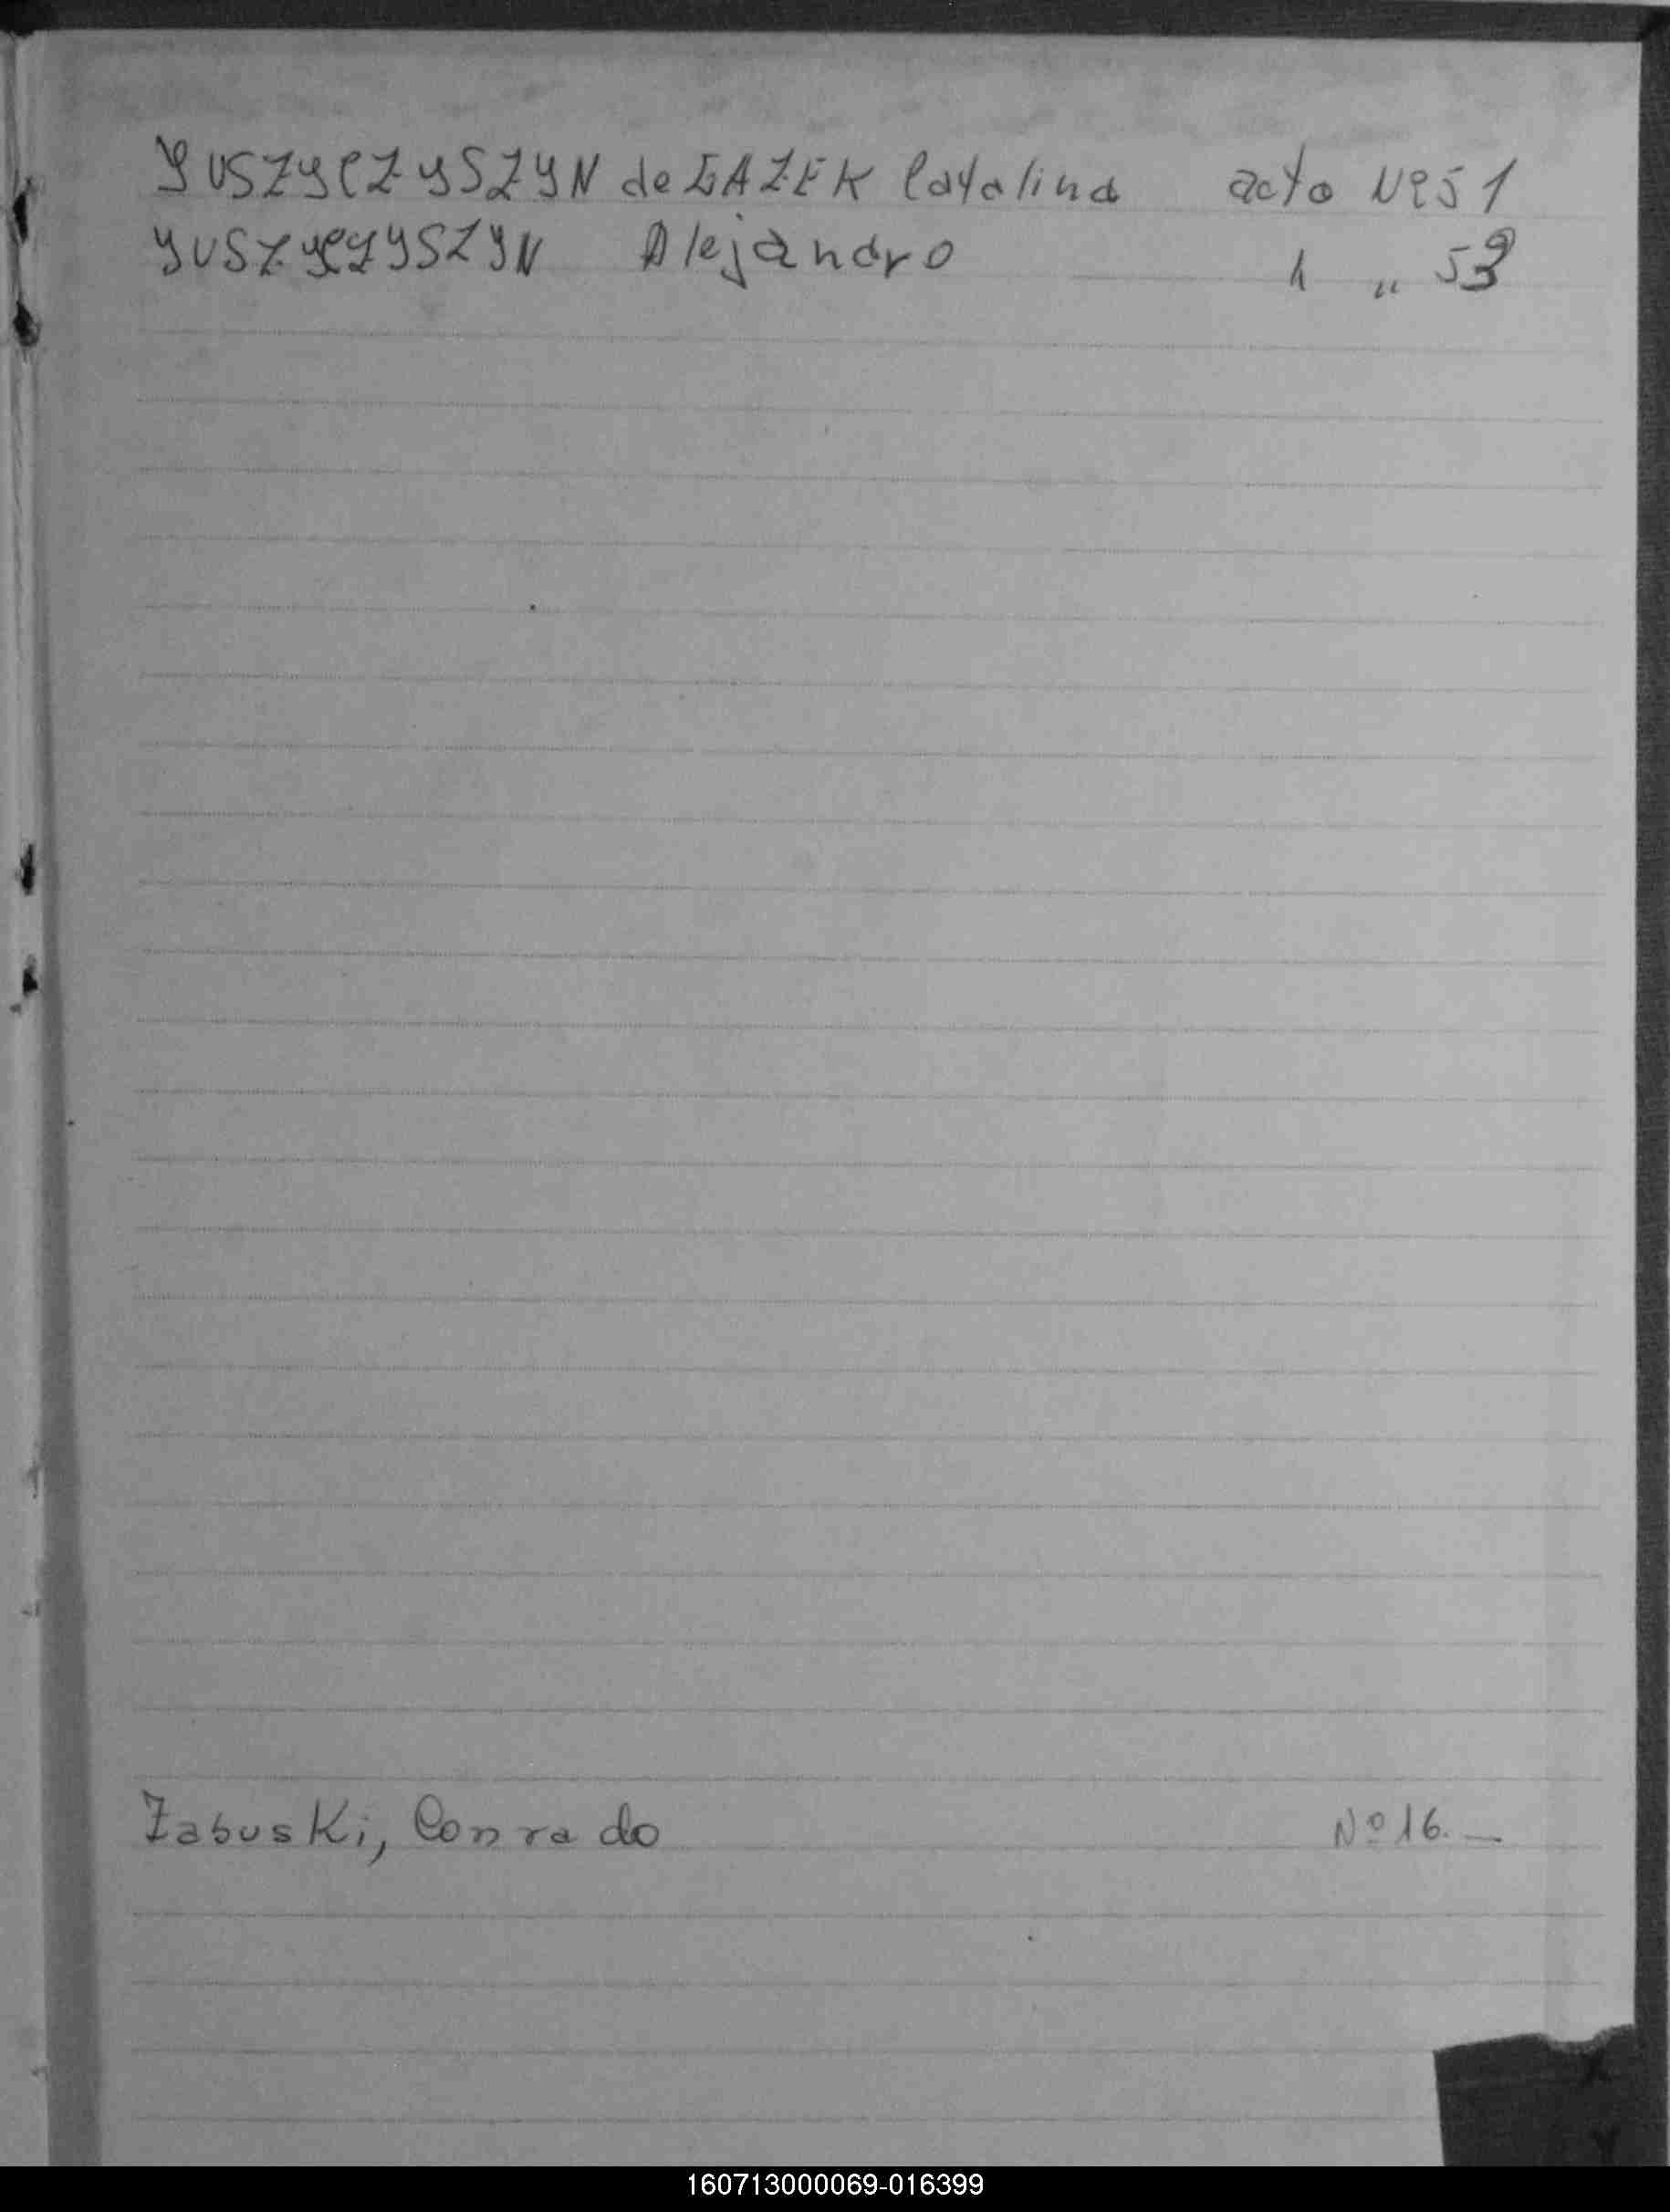 YUSZYCZYSZYN de GAZEK Catalina acta Nº51
YUSZYCZYSZYN Alejandro " " 53
Zabuski, Conrado Nº 16.—
160713000069-016399